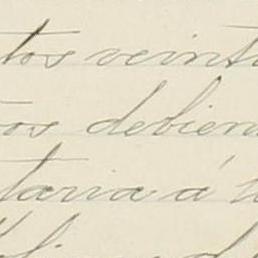 tos veint
os debien
taria á